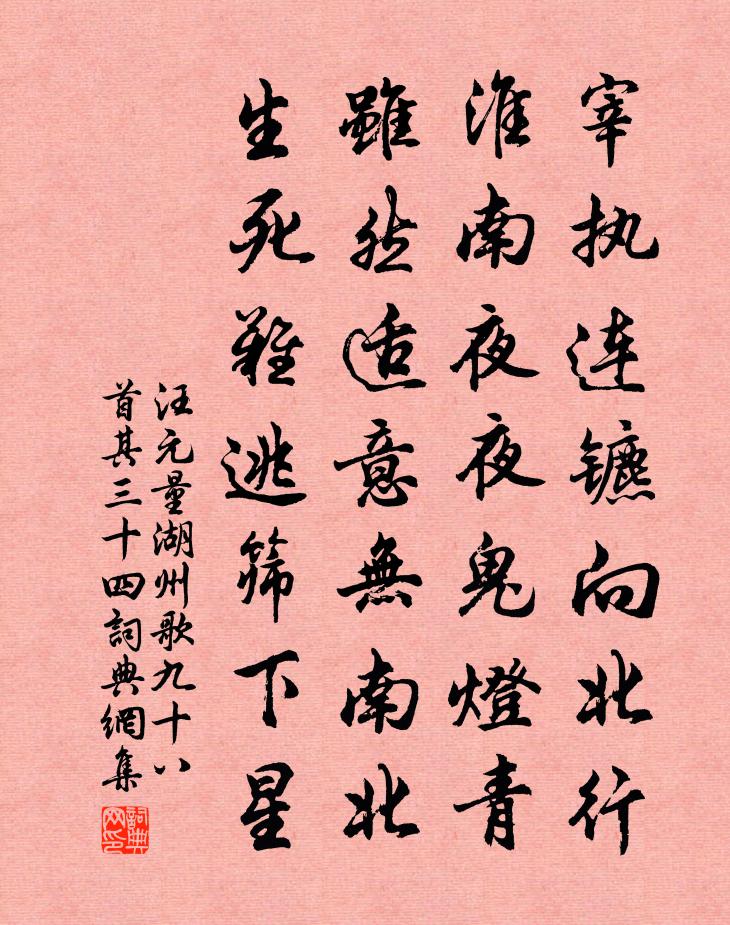 宰执连镳向北行
淮南夜夜鬼燈青
雖然适意無南北
生死難逃筛下星
汪元量湖州歌九十八
首其三十四詞典網集
詞典网印